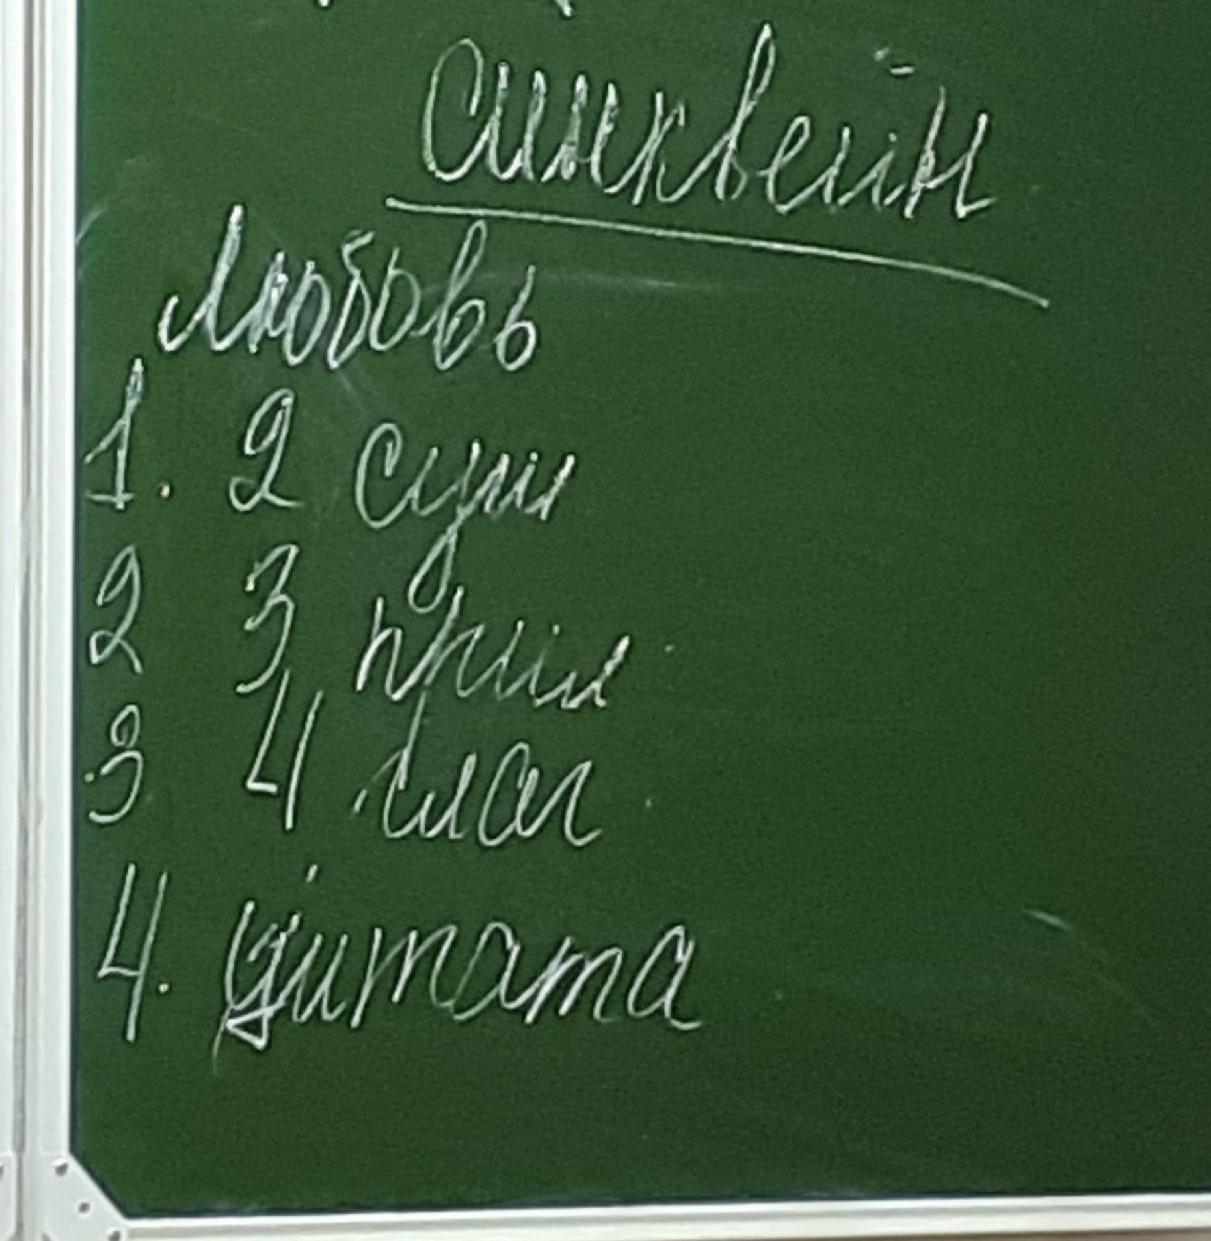 Синквейн
Любовь
1. 2 сущ
2 3 прил.
3 4 глаг.
4. цитата